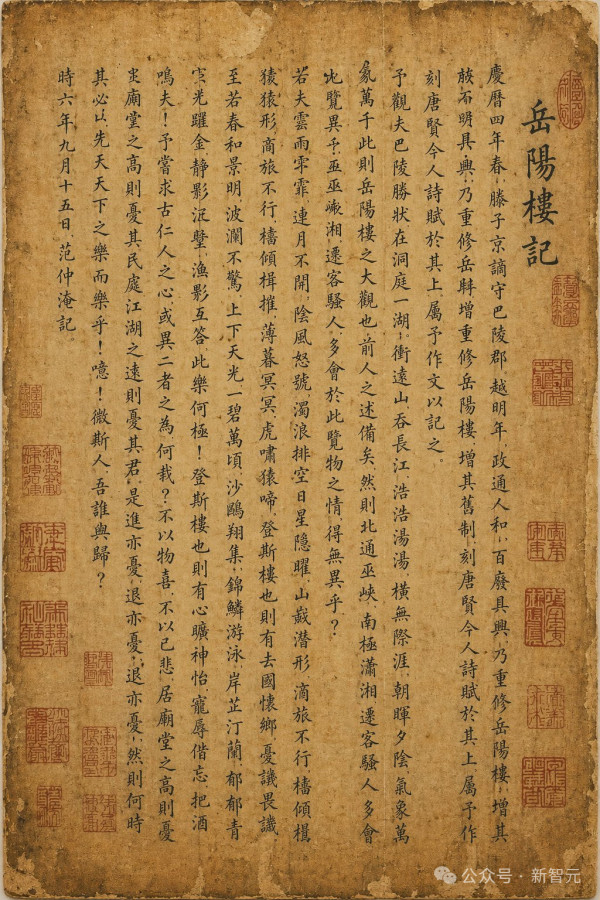 岳陽樓記
慶曆四年春，滕子京謫守巴陵郡，越明年，政通人和，百廢具興，乃重修岳陽樓，增其
具興，乃重修岳增重修岳陽樓，增其舊制，刻唐賢今人詩賦於其上，屬予作
刻唐賢今人詩賦於其上，屬予作文以記之。
予觀夫巴陵勝狀，在洞庭一湖，衝遠山，吞長江，浩浩湯湯，橫無際涯，朝暉夕陰，氣象萬
象萬千，此則岳陽樓之大觀也，前人之述備矣，然則北通巫峽，南極瀟湘，遷客騷人，多會
覽異乎，巫巫湘，遷客騷人，多會於此，覽物之情，得無異乎？
若夫雲雨霏，連月不開，陰風怒號，濁浪排空，日星隱曜，山潛形，商旅不行，檣傾楫
猿猿形，商旅不行，檣傾楫摧，薄暮冥冥，虎嘯猿啼，登斯樓也，則有去國懷鄉，憂讒畏讒
至若春和景明，波瀾不驚，上下天光，一碧萬頃，沙鷗翔集，錦鱗游泳，岸芷汀蘭，郁郁青
光躍金，靜影沉璧，漁影互答，此樂何極！登斯樓也，則有心曠神怡，寵辱偕忘，把酒
夫！予嘗求古仁人之心，或異二者之為，何哉？不以物喜，不以己悲，居廟堂之高則憂
廟堂之高則憂其民，處江湖之遠則憂其君，是進亦憂，退亦憂，退亦憂，然則何時
其必以先天天下之樂而樂乎！噫！微斯人，吾誰與歸？
時六年九月十五日，范仲淹記
公众号·新智元